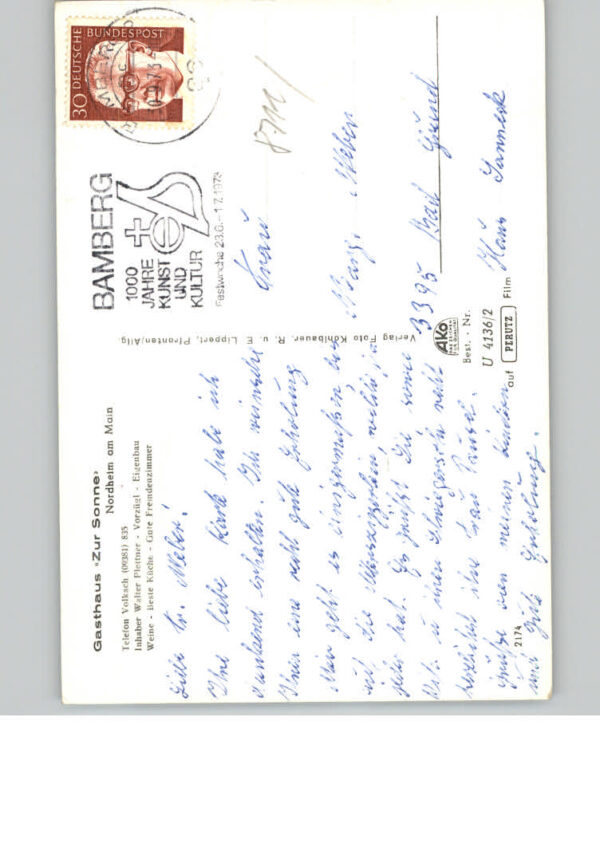 Gasthaus "Zur Sonne"
Nordheim am Main
Telefon Volkach (09381) 835
Inhaber Walter Plettner - Vorzügl. - Eigenbau
Weine - Beste Küche - Gute Fremdenzimmer
Liebe Fr. Weber!
Ihre liebe Karte habe ich
dankend erhalten. Ich wünsche
Ihnen eine recht gute Erholung
Mir geht es einigermaßen
auf die
geht hat. Es grüßt Sie
u. ihren recht
herzlichst ihre Frau
Grüße von meinen Kindern
und gute Erholung.
2174
Verlag Foto Kohlbauer, R. u. E. Lippert, Pfronten/Allg.
DEUTSCHE BUNDESPOST
30
BAMBERG
1000
JAHRE
KUNST
UND
KULTUR
Festwoche 23.6.-1.7.1973
Frau
Marg. Weber
3395 Bad Grund
Haus
AKo
Best. - Nr.
U 4136/2
auf PERUTZ Film